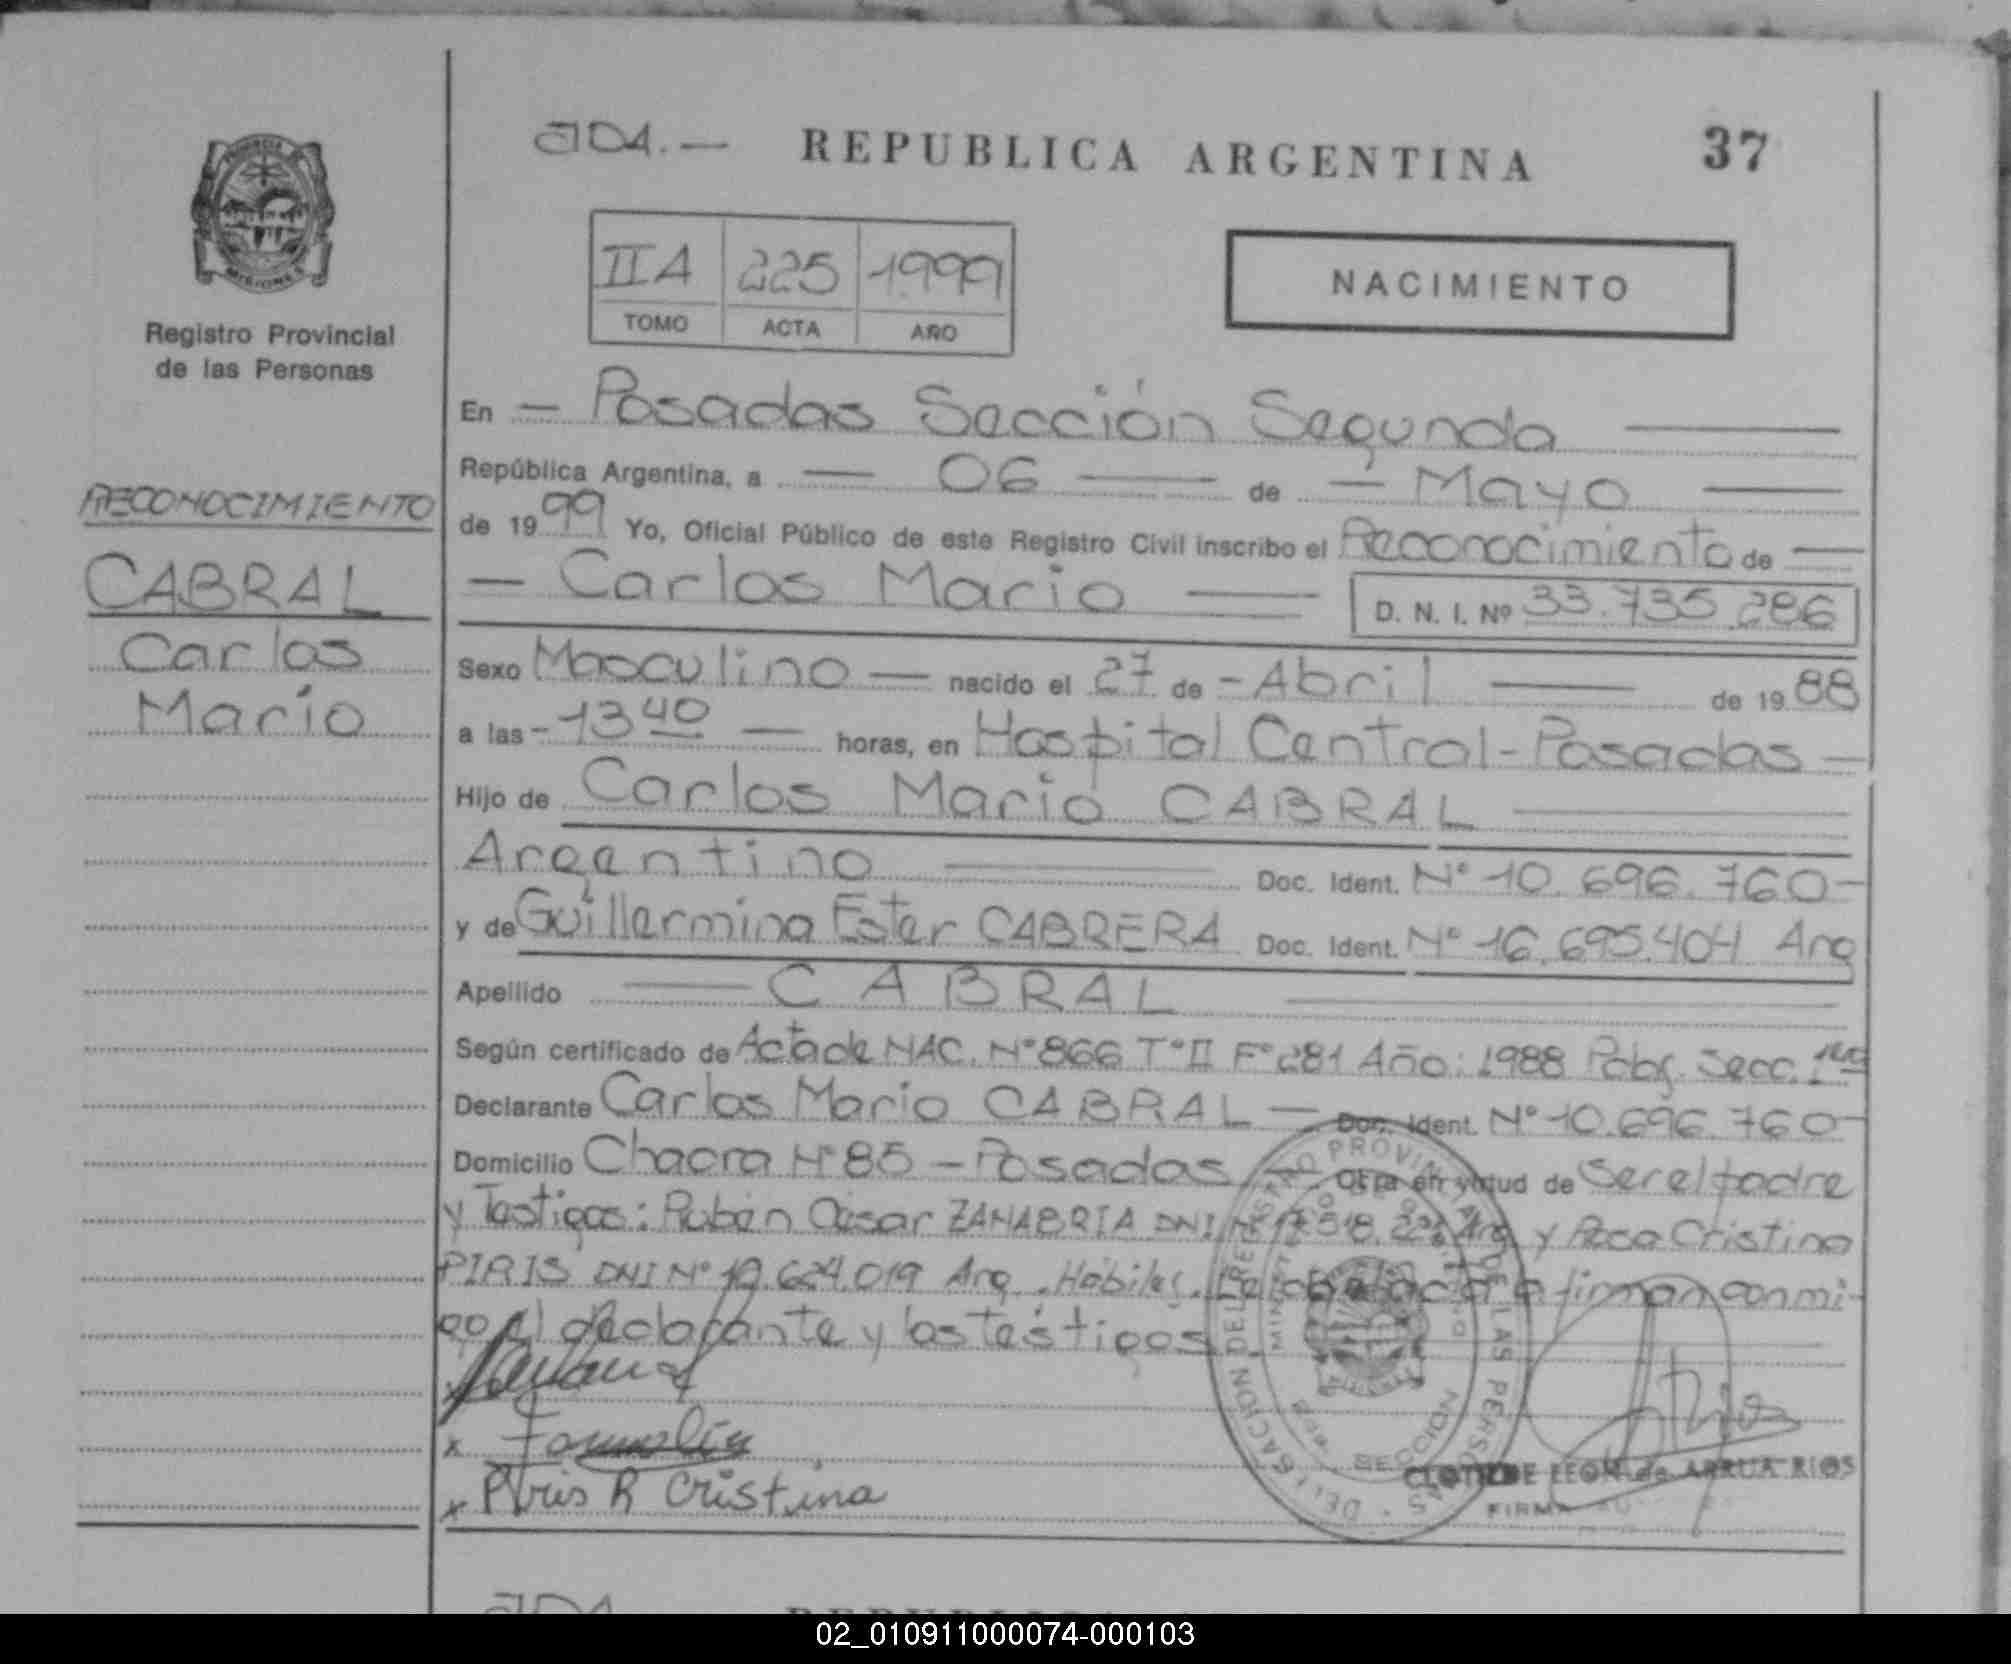 ADA.— REPUBLICA ARGENTINA 37
IIA 225 1999
TOMO ACTA AÑO
NACIMIENTO
PROVINCIA DE
MISIONES
Registro Provincial
de las Personas
RECONOCIMIENTO
CABRAL
Carlos
Mario
En — Posadas Sección Segunda —
República Argentina, a — 06 — de — Mayo —
de 1999 Yo, Oficial Público de este Registro Civil inscribo el Reconocimiento de —
— Carlos Mario — D. N. I. Nº 33.735.286
Sexo Masculino — nacido el 27 de - Abril — de 1988
a las - 13 40 — horas, en Hospital Central - Posadas —
Hijo de Carlos Mario CABRAL —
Argentino — Doc. Ident. Nº 10.696.760-
y de Guillermina Ester CABRERA Doc. Ident. Nº 16.695.404 Arg
Apellido — CABRAL —
Según certificado de Acta de NAC. Nº 866 Tº II Fº 281 Año: 1988 Pdas. Secc. 1ra
Declarante Carlos Mario CABRAL — Doc. Ident. Nº 10.696.760-
Domicilio Chacra Nº 85 - Posadas — Obra en virtud de Ser el padre
y Testigos: Rubén César ZANABRIA DNI Nº Arg y Rosa Cristina
PIRIS DNI Nº Arg. Hábiles. Leída el acta firman conmi-
go el declarante y los testigos.
x
x
x Piris R Cristina
DELEGACION DEL REGISTRO PROVINCIAL DE LAS PERSONAS
SECCION
CLOTILDE LEON de ARRUA RIOS
FIRMA
ADA
02_010911000074-000103